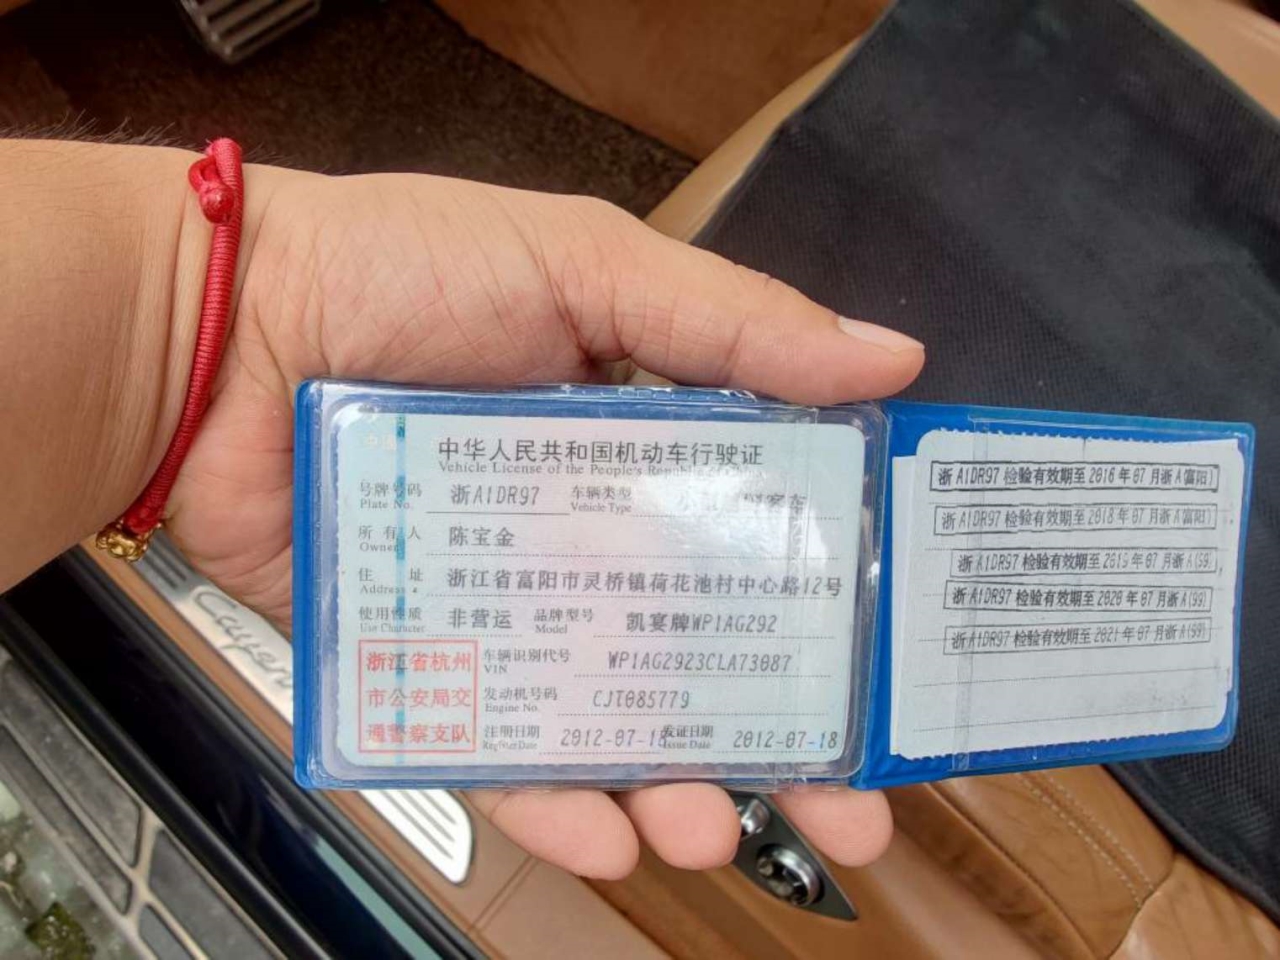 中华人民共和国机动车行驶证
Vehicle License of the People's Republic of China
号牌号码 浙A1DR97 车辆类型
Plate No. Vehicle Type
所有人 陈宝金
Owner
住址 浙江省富阳市灵桥镇荷花池村中心路12号
Address
使用性质 非营运 品牌型号 凯宴牌WP1AG292
Use Character Model
浙江省杭州
市公安局交
通警察支队
车辆识别代号 WP1AG2923CLA73087
VIN
发动机号码 CJT085779
Engine No.
注册日期 2012-07-18 发证日期 2012-07-18
Register Date Issue Date
浙A1DR97 检验有效期至2016年07月浙A(富阳)
浙A1DR97 检验有效期至2018年07月浙A(富阳)
浙A1DR97 检验有效期至2019年07月浙A(99)
浙A1DR97 检验有效期至2020年07月浙A(99)
浙A1DR97 检验有效期至2021年07月浙A(99)
Cayen